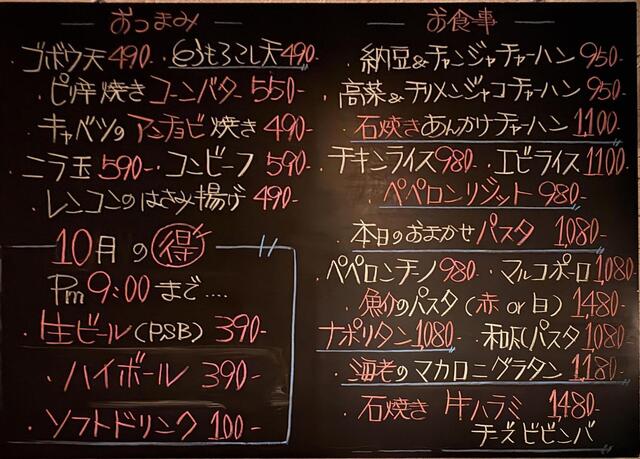 おつまみ
ゴボウ天 490- とうもろこし天 490-
・ピリ辛焼きコーンバター 550-
・キャベツのアンチョビ焼き 490-
・ニラ玉 590- ・コンビーフ 590-
・レンコンのはさみ揚げ 490-
10月の得
Pm 9:00まで....
・生ビール(P.S.B) 390-
・ハイボール 390-
・ソフトドリンク 100-
お食事
・納豆&チャンジャチャーハン 950-
・高菜&チリメンジャコチャーハン 950-
・石焼きあんかけチャーハン 1,100-
・チキンライス 980- ・エビライス 1,100-
・ペペロンリゾット 980-
・本日のおまかせパスタ 1,080-
・ペペロンチーノ 980- ・マルコポーロ 1,080-
・魚介のパスタ(赤 or 白) 1,480-
ナポリタン 1,080- ・和風パスタ 1,080-
・海老のマカロニグラタン 1,180-
・石焼き 牛ハラミ 1,480-
チーズビビンバ